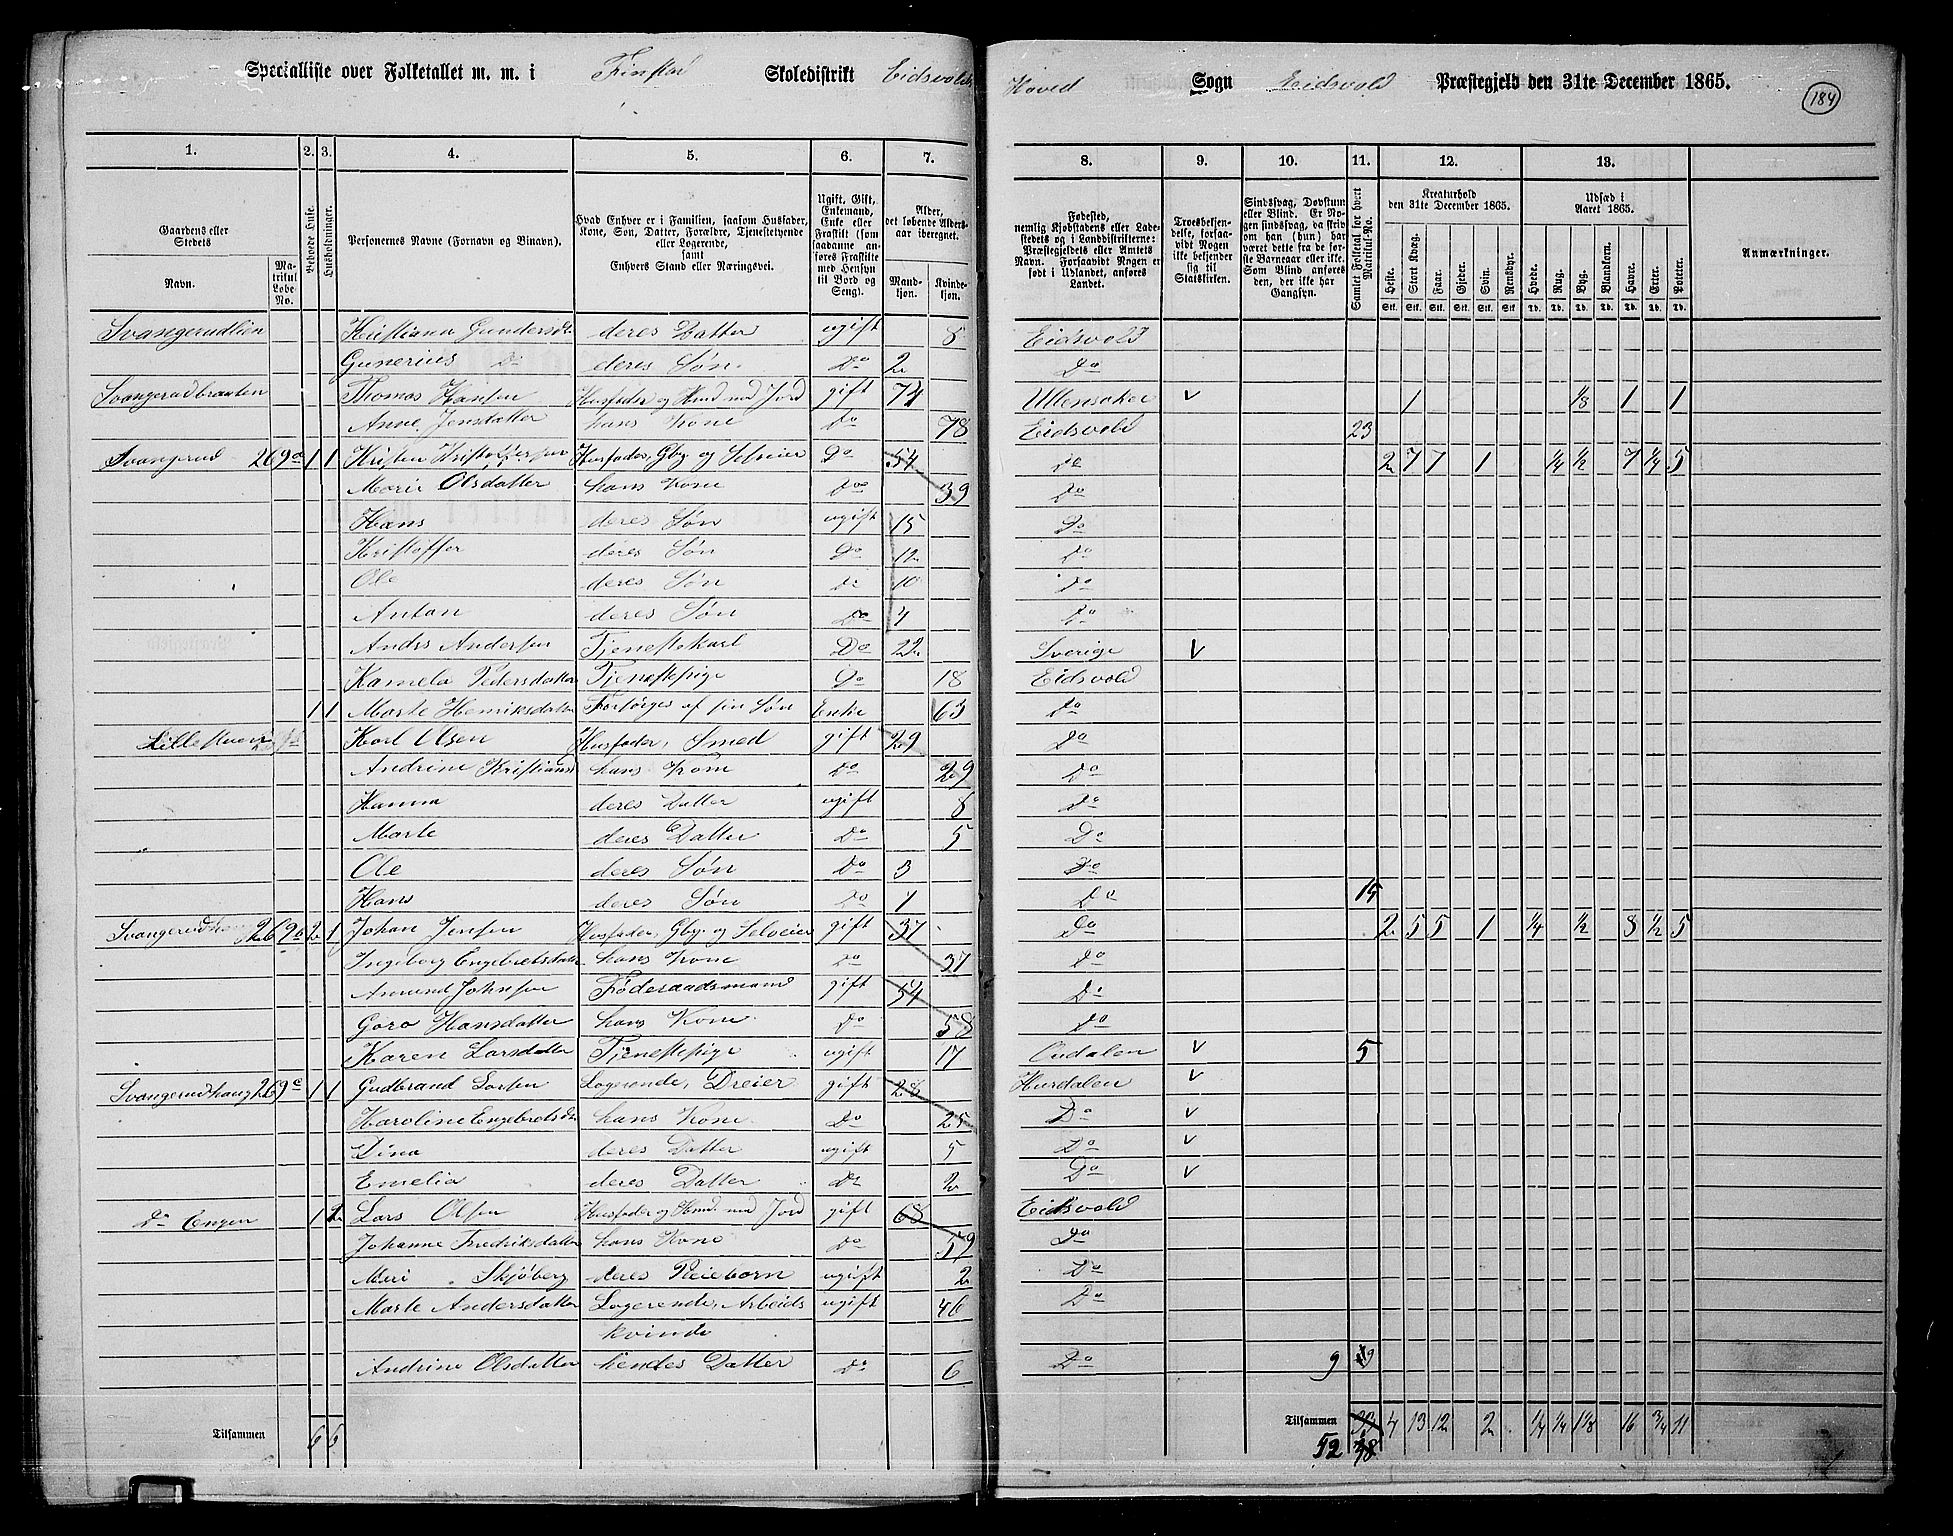 Specialliste over Folketallet m. m. i Finstad Skoledistrikt Eidsvolds Hoved Sogn Eidsvold Præstegjeld den 31te December 1865. 184
1. 2. 3. 4. 5. 6. 7. 8. 9. 10. 11. 12. 13.
Gaardens eller Stedets
Navn.
Matrikul Løbe No.
Beboede Huse.
Husholdninger.
Personernes Navne (Fornavn og Binavn).
Hvad Enhver er i Familien, saasom Husfader, Kone, Søn, Datter, Forældre, Tjenestetyende eller Logerende, samt Enhvers Stand eller Næringsvei.
Ugift, Gift, Enkemand, Enke eller Fraskilt (som saadanne anføres Fraskilte med Hensyn til Bord og Seng).
Alder, det løbende Aldersaar iberegnet.
Mandkjøn. Kvindekjøn.
Fødested, nemlig Kjøbstadens eller Ladestedets og i Landdistrikterne: Præstegjeldets eller Amtets Navn. Forsaavidt Nogen er født i Udlandet, anføres Landet.
Troesbekjendelse, forsaavidt Nogen ikke bekjender sig til Statskirken.
Sindssvag, Døvstum eller Blind. Er Nogen sindssvag, da skrives om han (hun) har været dette fra de første Barneaar eller ikke. Som Blind anføres den, der ikke har Gangsyn.
Samlet Folketal for hvert Matrikul-No.
Kreaturhold den 31te December 1865.
Heste. Stort Kvæg. Faar. Gjeder. Svin. Rensdyr.
Stk. Stk. Stk. Stk. Stk. Stk.
Udsæd i Aaret 1865.
Hvede. Rug. Byg. Blandkorn. Havre. Erter. Poteter.
Td. Td. Td. Td. Td. Td. Td.
Anmærkninger.
Svangerudlien Kristiana Gundersdt deres Datter ugift 8 Eidsvold
Gunerius Do deres Søn. Do 2 Do
Svangerudbraaten Thomas Hansen Husfader og Husmd med Jord gift 74 Ullensaker v 1 1/8 1 1
Anne Jensdatter hans Kone Do 78 Eidsvold 23
Svangerud 269a 1 1 Kristen Kristoffersen Husfader, Gbr og Selveier Do 54 Do 2 7 7 1 1/4 1/2 7 1/4 5
Marie Olsdatter hans Kone Do 39 Do
Hans deres Søn ugift 15 Do
Kristoffer deres Søn Do 12 Do
Ole deres Søn Do 10 Do
Anton deres Søn Do 4 Do
Andrs Andersen Tjenestekarl Do 22 Sverige v
Kamela Pedersdatter Tjenestepige Do 18 Eidsvold
1 1 Marte Henriksdatter Forsørges af sin Søn Enke 63 Do
Lillestuen Karl Olsen Husfader, Smed gift 29 Do
Andrine Kristiansd hans Kone Do 29 Do
Hanna deres Datter ugift 8 Do
Marte deres Datter Do 5 Do
Ole deres Søn Do 3 Do
Hans deres Søn Do 1 Do 15
Svangerudhaug 269b 2 1 Johan Jensen Husfader, Gbr og Selveier gift 37 Do 2 5 5 1 1/4 1/2 8 1/2 5
Ingeborg Engebretsdatter hans Kone Do 37 Do
Amund Johnsen Føderaadsmand gift 54 Do
Goro Hansdatter hans Kone Do 58 Do
Karen Larsdatter Tjenestepige ugift 17 Oudalen v 5
Svangerudhaug 269c 1 1 Gudbrand Larsen Logerende, Dreier gift 28 Hurdalen v
Karoline Engebretsdtr hans Kone Do 25 Do v
Dina deres Datter ugift 5 Do v
Emelia deres Datter Do 2 Do v
Do Engen 1 2 Lars Olsen Husfader og Husmd med Jord gift 68 Eidsvold
Johanne Fredriksdatter hans Kone Do 59 Do
Meri Skjøberg deres Pleiebørn ugift 2 Do
Marte Andersdatter Logerende, Arbeids ugift 46 Do
kvinde
Andrine Olsdatter hendes Datter Do 6 Do 9 9
Tilsammen 6 6 Tilsammen 33 4 13 12 2 1/4 1/4 1 1/8 16 3/4 11
52 48